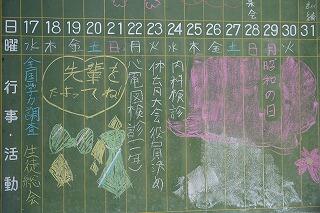 日 17 18 19 20 21 22 23 24 25 26 27 28 29 30 31
曜 水 木 金 土 日 月 火 水 木 金 土 日 月 火
行事・活動
全国学力調査 生徒総会
先輩を
たよってね!
心電図検診(一年)
体育大会役員決め
内科検診
昭和の日